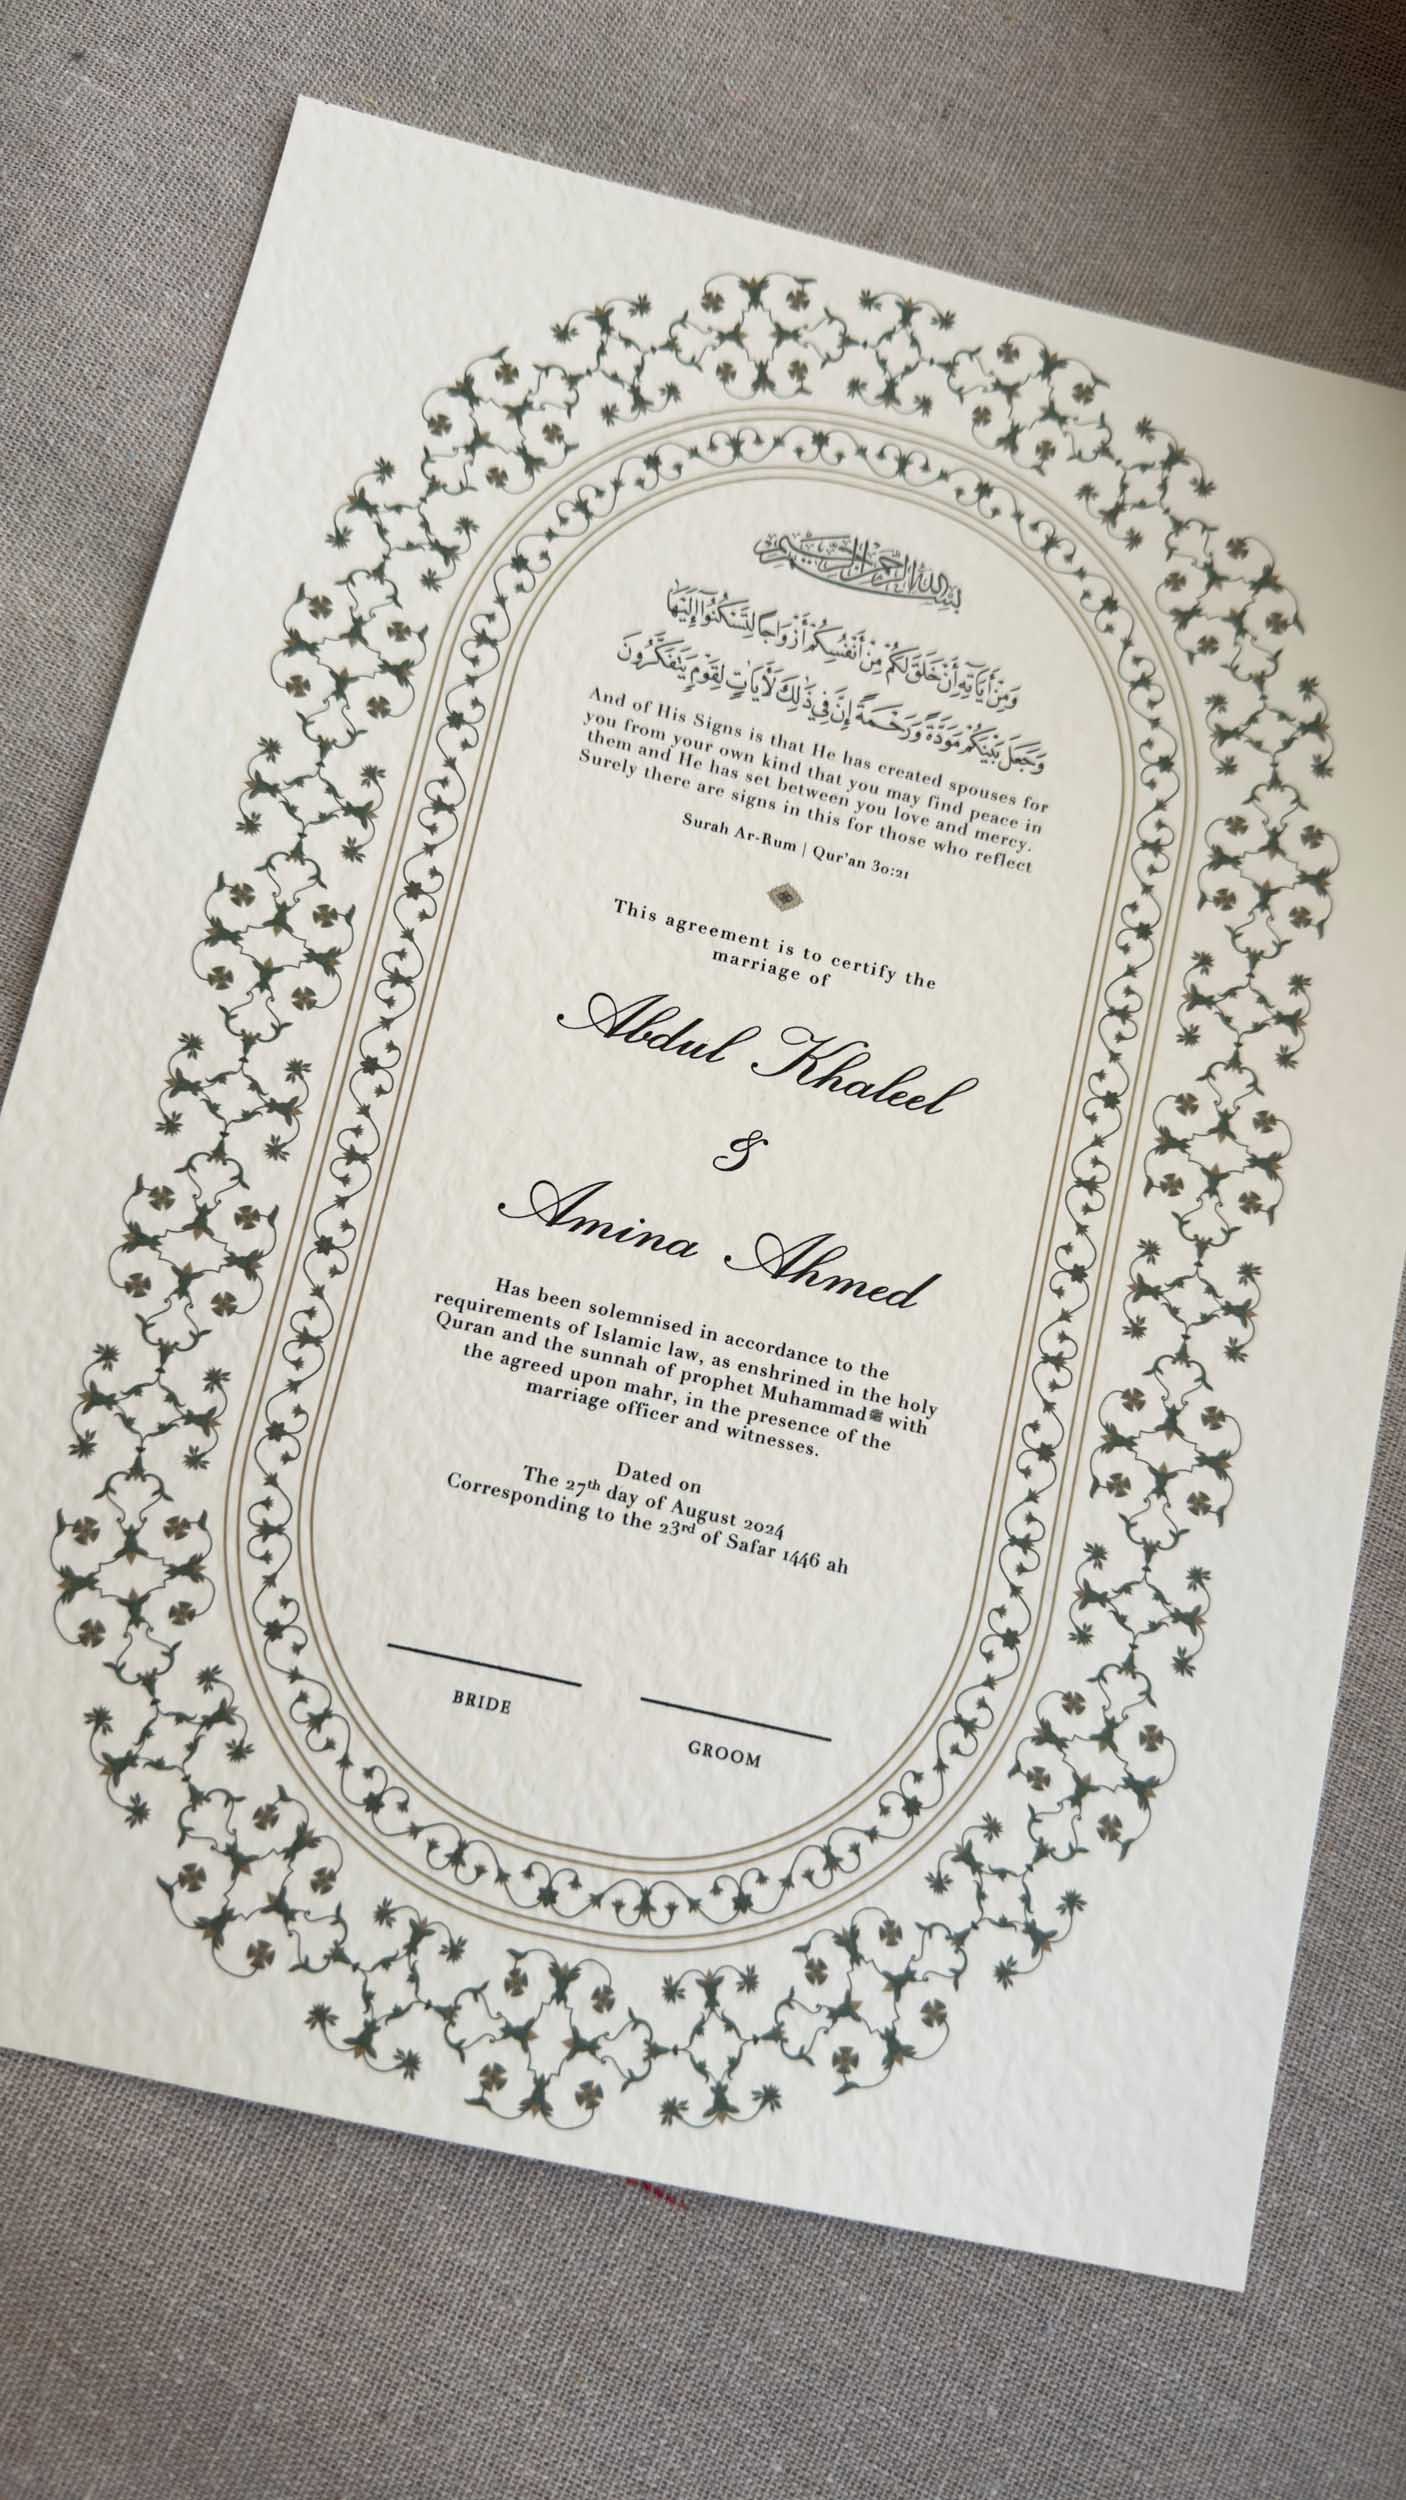 بسم الله الرحمن الرحيم
وَمِنْ أَيَاتِهِ أَنْ خَلَقَ لَكُمْ مِنْ أَنْفُسِكُمْ أَزْوَاجًا لِتَسْكُنُوا إِلَيْهَا
وَجَعَلَ بَيْنَكُمْ مَوَدَّةً وَرَحْمَةً إِنَّ فِي ذَٰلِكَ لَأَيَاتٍ لِقَوْمٍ يَتَفَكَّرُونَ
And of His Signs is that He has created spouses for
you from your own kind that you may find peace in
them and He has set between you love and mercy.
Surely there are signs in this for those who reflect
Surah Ar-Rum | Qur'an 30:21
This agreement is to certify the
marriage of
Abdul Khaleel
&
Amina Ahmed
Has been solemnised in accordance to the
requirements of Islamic law, as enshrined in the holy
Quran and the sunnah of prophet Muhammadﷺ with
the agreed upon mahr, in the presence of the
marriage officer and witnesses.
Dated on
The 27th day of August 2024
Corresponding to the 23rd of Safar 1446 ah
BRIDE
GROOM